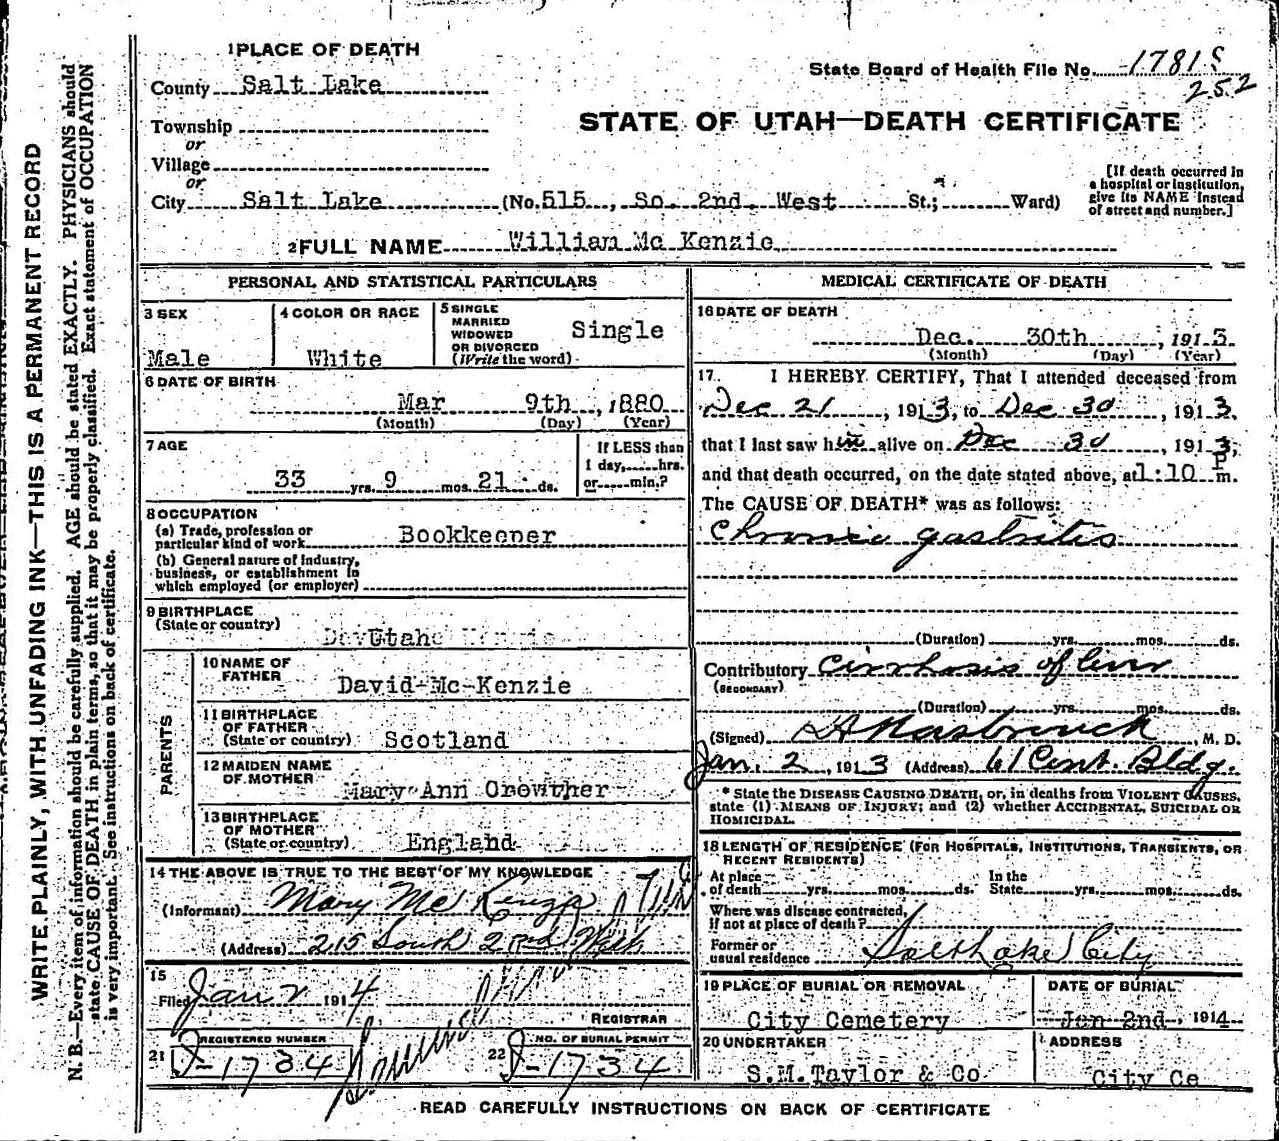 1 PLACE OF DEATH
County Salt Lake
State Board of Health File No. 1781
252
Township
or
Village
or
STATE OF UTAH—DEATH CERTIFICATE
[If death occurred in
a hospital or institution,
give its NAME instead
of street and number.]
City Salt Lake (No. 515, So. 2nd. West St.; Ward)
2 FULL NAME William Mc Kenzie
PERSONAL AND STATISTICAL PARTICULARS
3 SEX
Male
4 COLOR OR RACE
White
5 SINGLE
MARRIED
WIDOWED
OR DIVORCED
(Write the word)
Single
6 DATE OF BIRTH
Mar 9th, 1880
(Month) (Day) (Year)
7 AGE
33 yrs. 9 mos. 21 ds.
If LESS than
1 day, hrs.
or min.?
8 OCCUPATION
(a) Trade, profession or
particular kind of work Bookkeeper
(b) General nature of industry,
business, or establishment in
which employed (or employer)
9 BIRTHPLACE
(State or country)
Utah
PARENTS
10 NAME OF
FATHER
David Mc-Kenzie
11 BIRTHPLACE
OF FATHER
(State or country) Scotland
12 MAIDEN NAME
OF MOTHER
Mary Ann Crowther
13 BIRTHPLACE
OF MOTHER
(State or country) England
14 THE ABOVE IS TRUE TO THE BEST OF MY KNOWLEDGE
(Informant) Mary Mc Kenzie
(Address) 215 South 2nd West
15
Filed Jan 2 1914
REGISTRAR
REGISTERED NUMBER
21 J-1734
NO. OF BURIAL PERMIT
22 J-1734
MEDICAL CERTIFICATE OF DEATH
16 DATE OF DEATH
Dec. 30th, 1913
(Month) (Day) (Year)
17. I HEREBY CERTIFY, That I attended deceased from
Dec 21, 1913, to Dec 30, 1913,
that I last saw him alive on Dec 30, 1913,
and that death occurred, on the date stated above, at 1:10 P m.
The CAUSE OF DEATH* was as follows:
Chronic gastritis
(Duration) yrs. mos. ds.
Contributory Cirrhosis of liver
(SECONDARY)
(Duration) yrs. mos. ds.
(Signed) M. D.
Jan. 2, 1913 (Address) 61 Cent. Bldg.
* State the DISEASE CAUSING DEATH, or, in deaths from VIOLENT CAUSES,
state (1) MEANS OF INJURY; and (2) whether ACCIDENTAL, SUICIDAL OR
HOMICIDAL.
18 LENGTH OF RESIDENCE (FOR HOSPITALS, INSTITUTIONS, TRANSIENTS, OR
RECENT RESIDENTS)
At place
of death yrs. mos. ds.
In the
State yrs. mos. ds.
Where was disease contracted,
if not at place of death?
Former or
usual residence Salt Lake City
19 PLACE OF BURIAL OR REMOVAL
City Cemetery
DATE OF BURIAL
Jan 2nd, 1914
20 UNDERTAKER
S.M. Taylor & Co
ADDRESS
City
READ CAREFULLY INSTRUCTIONS ON BACK OF CERTIFICATE
WRITE PLAINLY, WITH UNFADING INK—THIS IS A PERMANENT RECORD
N. B.—Every item of information should be carefully supplied. AGE should be stated EXACTLY. PHYSICIANS should
state CAUSE OF DEATH in plain terms, so that it may be properly classified. Exact statement of OCCUPATION
is very important. See instructions on back of certificate.